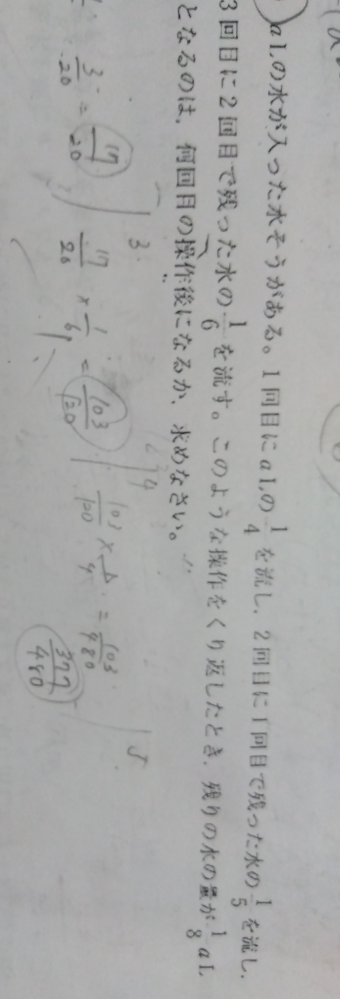 aLの水が入った水そうがある。1回目にaLの1/4を流し、2回目に1回目で残った水の1/5を流し、
3回目に2回目で残った水の1/6を流す。このような操作をくり返したとき、残りの水の量が1/8aL
となるのは、何回目の操作後になるか、求めなさい。
3/20 = 17/20
3
17/20 × 1/6 = 103/120
4
103/120 × = 103/480
377/480
5